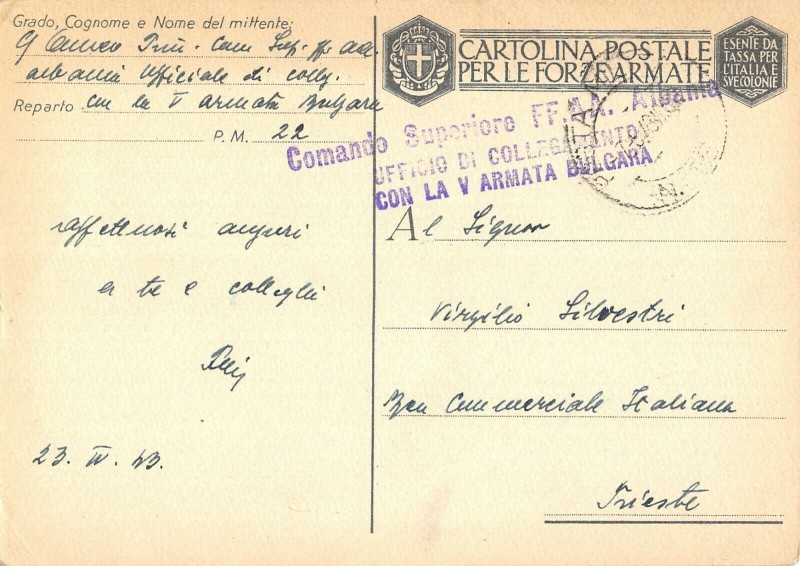 Grado, Cognome e Nome del mittente:
Com. Sup. ff. aa.
Albania Ufficiale di colleg.
Reparto con la V armata Bulgara
P. M. 22
CARTOLINA POSTALE
PER LE FORZE ARMATE
ESENTE DA
TASSA PER
L'ITALIA E
SVE COLONIE
Comando Superiore FF.AA. Albania
UFFICIO DI COLLEGAMENTO
CON LA V ARMATA BULGARA
affettuosi auguri
a te e colleghi
23. IV. 43.
Al Signor
Virgilio Silvestri
Commerciale Italiana
Trieste